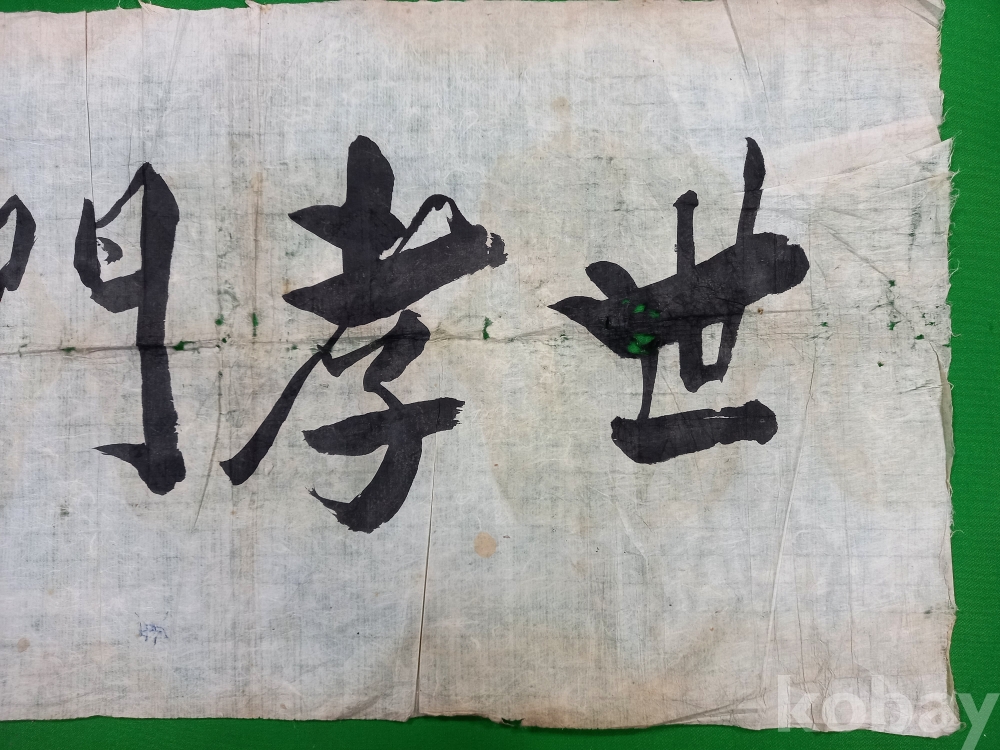 世孝門
kobay